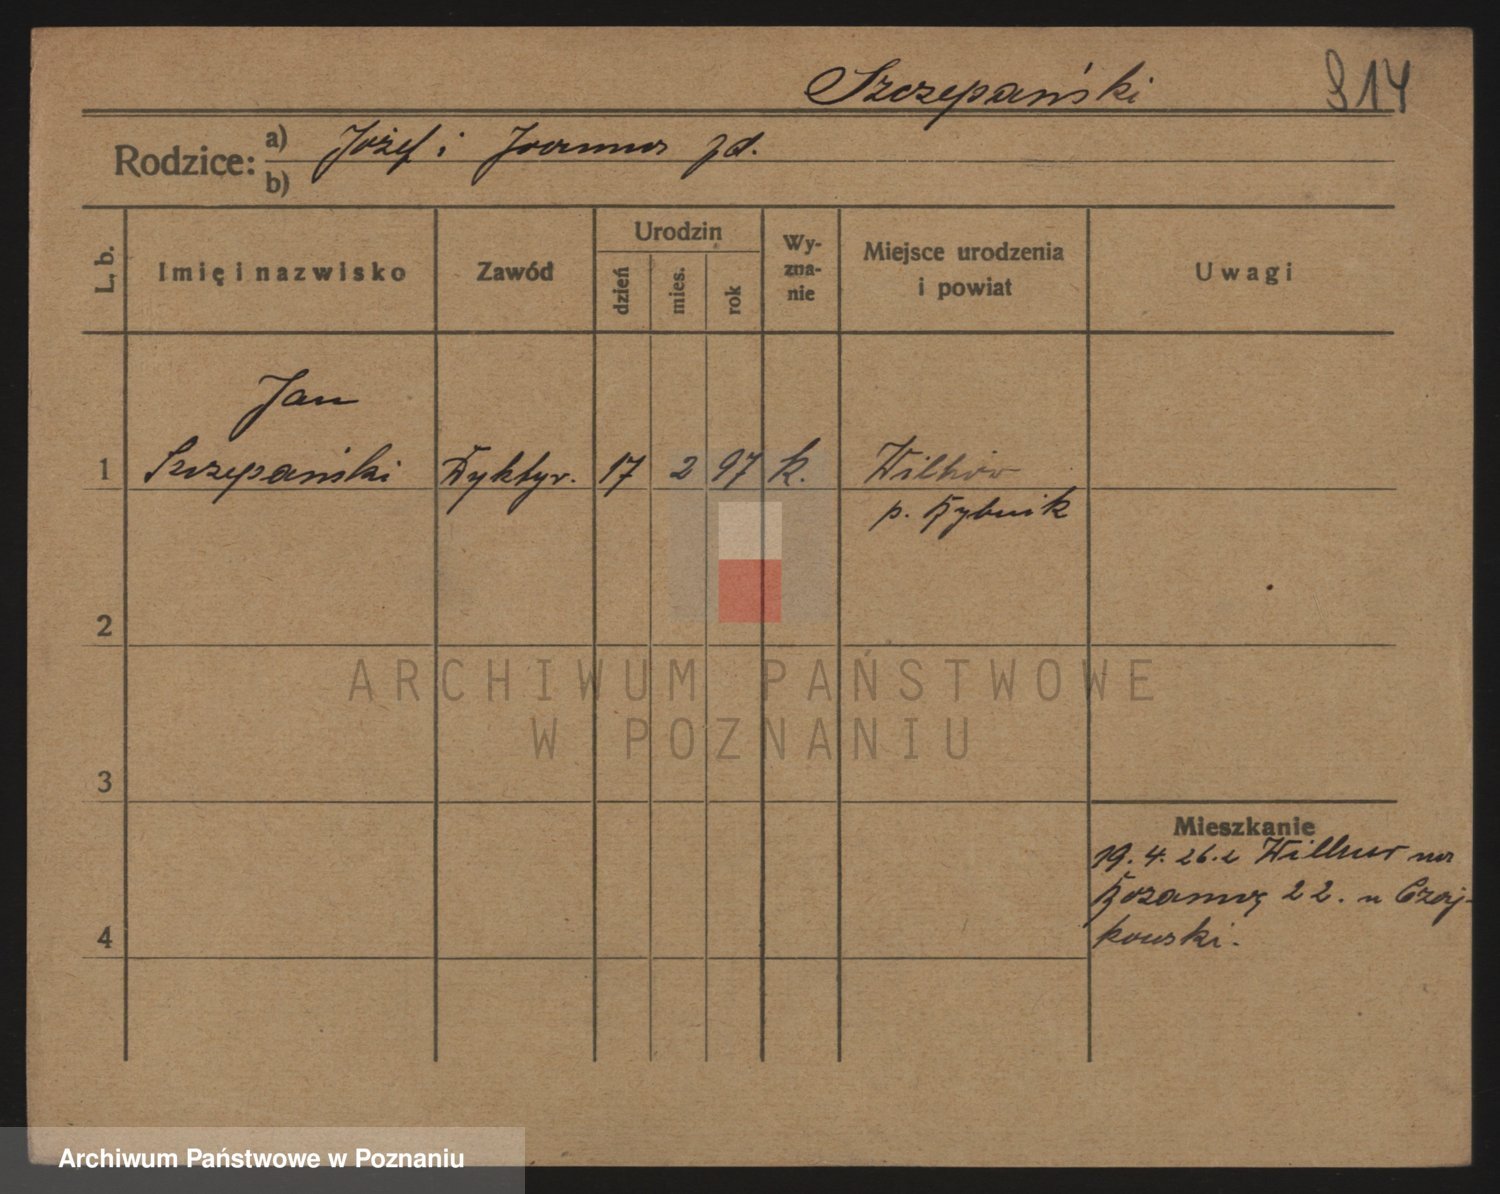 Szczepański
S14
Rodzice: a) Józef i Joanna
b)
L. b.
Imię i nazwisko
Zawód
Urodzin
dzień
mies.
rok
Wy-
zna-
nie
Miejsce urodzenia
i powiat
Uwagi
Jan
1 Szczepański Dyktyr. 17 2 97 k. Wilhów
p. Rybnik
2
3
4
Mieszkanie
19. 4. 26. z na
22. u Czaj-
kowski.
ARCHIWUM PAŃSTWOWE
W POZNANIU
Archiwum Państwowe w Poznaniu